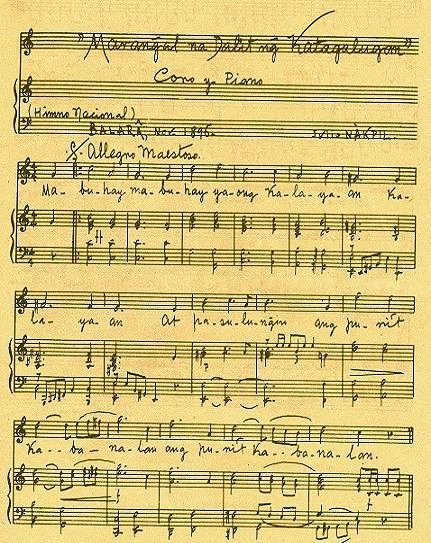 "Marang̃al na Dalit ng̃ Katagalugan"
Coro y Piano
(Himno Nacional)
BALARÂ, Nov. 1896. Julio NÁKPIL.
Allegro Maestoso.
Ma- bu-hay ma-bu-hay ya-ong Ka-la-ya-an Ka-
la-ya-an At pa-su-lu-ng̃in ang pu-nit
Ka--ba-na-lan ang pu-nit Ka--ba-na-lan.